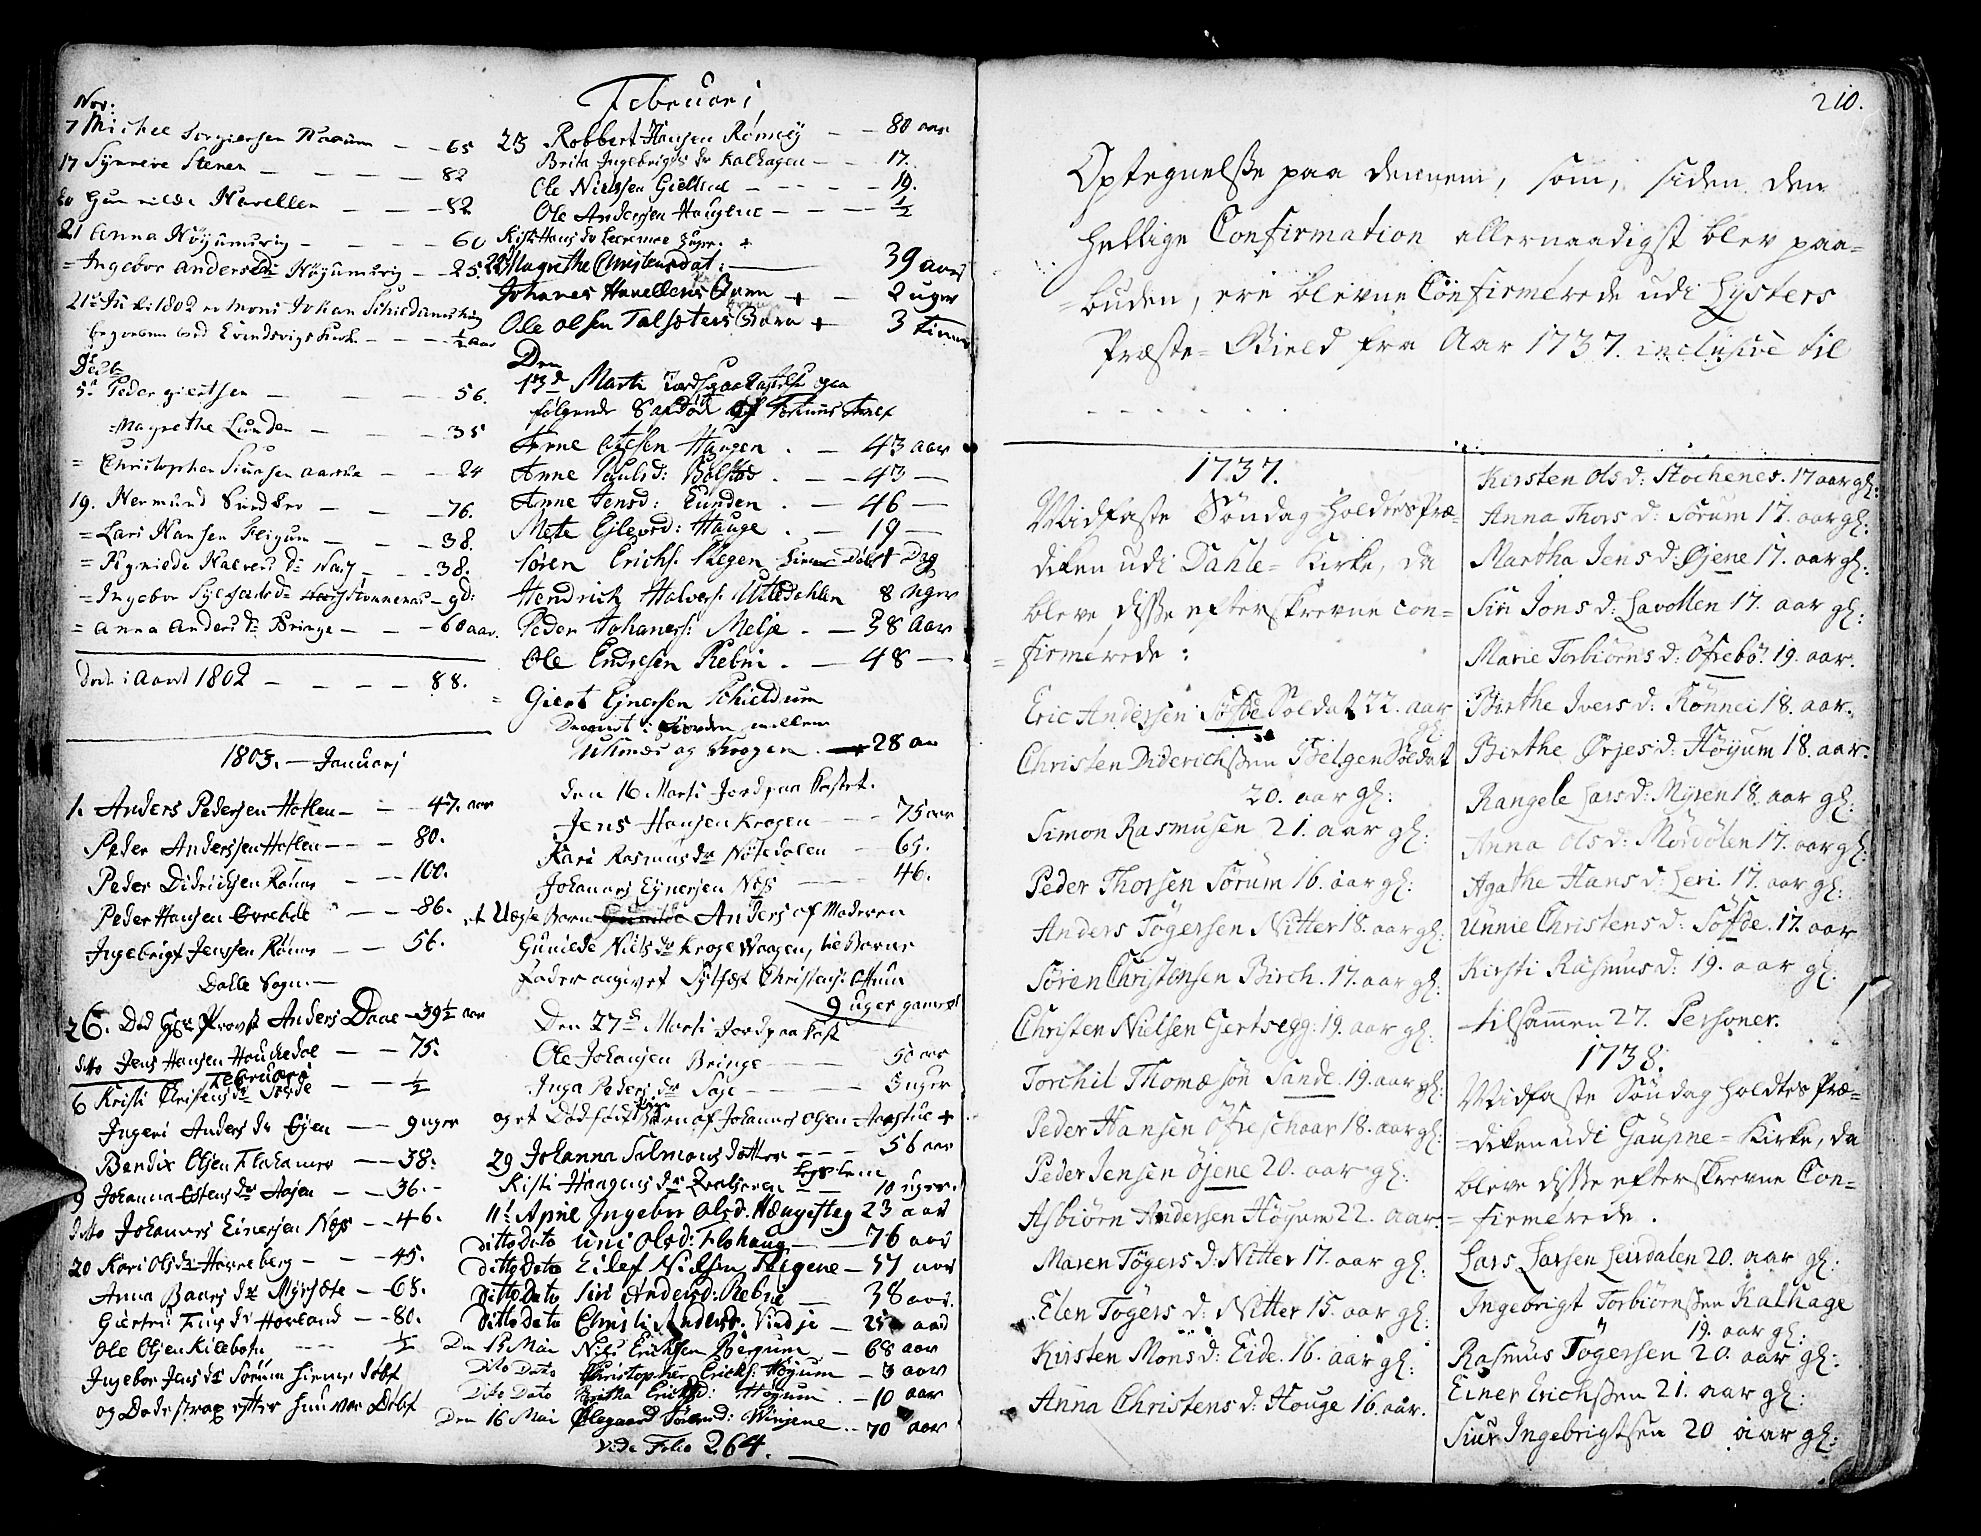 Nov:
7 Michel Torgiersen — — 65
17 Synneve Stenen — — — — 82
20 Gunnilde Havellen — — — 82
21 Anna Höyumsvig — — — — 60
= Ingebor Anders dr Höyumsvig — — 25.
21 Juli 1802 er Mons Johan Schieldams
begraven ved Evindvigs Kirke — — — ½ aar
Decbr
5. Peder giertsen — — — 56.
= Magrethe Lunden — — — 35
= Christopher Siursen — — 24
19. Hermund — — — 76.
= Lars Hansen — — — 38.
= Ragnilde Halvers dr — — — 38.
= Ingebor — gd:
= Anna Anders dr Bringe — — — 60 aar.
Døde i Aaret 1802 — — — — 88.
1803. — Januarj
1. Anders Pedersen Hotlen — — — 47. aar
Peder Anderssen Hotlen — — — 80.
Peder Didrichsen Rönne — — — 100.
Peder Hansen Ovreböe — — — 86.
Ingebrigt Jenssen Rönne — — 56.
Dalle Sogn. —
26. Död Hr Provst Anders Daae — 39½ aar
ditto Jens Hansen — — 75.
Februarj
6 Kristi Christens dr — — ½
Ingeri Anders dr Ojen — — 9 uger
Bendix Olsen Flahamer — — 38.
9 Johanna Ostens dr Aasen — — 36. -
ditto Johannes Einersen Næs — — 46.
20 Kari Ols dr Harreberg — — — 45.
Anna Baars dr Myrsöte — 68.
Giertrui Finds dr Hovland — — 80.
Ole Olsen Kilebotn — — — ½
Ingebor Jens dr Sörum hieme döbt
og Döde strax efter hun var Döbt
Februari
23 Robbert Hansen Rönnej — — 80 aar
Brita Ingebrigts dr Kalhagen — — 17.
Ole Nielssen Gielsnd — — — — 19.
Ole Andersen Haugene — — — — ½
Kisti Hans dr
Magrethe Christensdat: — 39 aar
Johanes Havellens Barn + — 2 uger
Ole olsen Talsöters Barn + — 3 timer
Den
13 d Marti Jordspaakastelse paa
følgende
Arne Atlesen Haugen . — 43 aar
Anne Pauls d: Bolstad . — — 43 —
Anne Jens d: Lunden . — 46 —
Mete Ejlevs d: Hauge . — 19 —
Sören Erichs: Skegen hieme Döbt 1 Dag
Hendrich Halvors: Uttedahlen 8 Uger
Peder Johaness: Melse . — 38 Aar
Ole Endresen Rebni . — 48 —
= Giert Ejnersen Schieldum
Druknet i Fiorden mellem
Urnæs og Krogen — 28 aar
den 16 Marti Jord paa Kastet.
Jens Hansen Krogen — — — 75 aar
Kari Rasmus dr Nötedalen — 65.
Johannes Eynersen Næs — — — 46.
et Uægte Barn Anders af Moderen
Gunilde Niels dr Kroge Waagen, til Barne
fader angivet Sylfest Christens: Ottum
9 uger gammel
Den 27 d Marti Jord paa kast
Ole Johansen Bringe — — — 50 aar
Inga Peders dr Saje — — — — 3 uger
og et Dødfød Barn af Johannes Olsen Aaestue +
29 Johanna Salmons datter — — — 56 aar
Kisti Haagens dr — — 10 uger.
11te April Ingebor Olsd. Hængesteg 23 aar
Ditto Dato Uni Olsd: Flohaug — — 76 aar
Ditto Dato Eilef Nielsen Skegene — 57 aar
Ditto Dato Siri Andersd: Rebne — 38 aar.
Ditto Dato Christi Andersd: Vindje — 25 aar
Den 15 Mai Nils Ericksen Bergum — 68 aar
Dito Dato Christopher Ericks: Höyum — 3 aar
Dito Dato Britha Ericksd: Høyum — 10 aar
Den 16 Mai Olegaard Sörensd: Winjene . . 70 aar
vide Folio 264. —
210.
Optegnelsse paa dennem, som, siden den
hellige Confirmation allernaadigst blev paa=
=buden, ere blevne Confirmerede udi Lysters
Præste= Gield fra Aar 1737. inclusive til
- - - - - - -
1737.
Midfaste Söndag holdtes Præ=
diken udi Dahle= Kirke, da
bleve disse efterskrevne Con=
= firmerede :
Eric Andersen Söfde Soldat 22. aar
gl:
Christen Diderichssen Bolgen Soldat
20. aar gl:
Simon Rasmusen 21. aar gl:
Peder Thorsen Sörum 16. aar gl:
Anders Tögersen Nitter 18. aar gl:
Sören Christensen Birch. 17. aar gl:
Christen Nielsen Gertsegg: 19. aar gl:
Torchil Thomæsön Sande. 19. aar gl:
Peder Hansen Öfreschaar 18. aar gl:
Peder Jensen Öjene 20. aar gl:
Asbiörn Andersen Höyum 22. aar.
Maren Tögers d: Nitter 17. aar gl:
Elen Tögers d: Nitter 15. aar gl:
Kirsten Mons d: Eide. 16. aar gl:
Anna Christens d: Houge 16. aar.
Kirsten Ols d: Stochenes. 17 aar gl:
Anna Thors d: Sörum 17. aar gl:
Martha Jens d: Øjene 17. aar gl:
Siri Jons d: Lavollen 17. aar gl:
Marie Torbiörns d: Öfrebö. 19. aar.
Birthe Ivers d: Rönnei 18. aar.
Birthe Ørjes d: Höyum 18. aar.
Rangele Lars d: Myren 18. aar gl:
Anna Ols d: Mordölen 17. aar gl:
Agathe Hans d: Leri. 17. aar gl:
Unnie Christens d: Söfde. 17. aar
Kirsti Rasmus d: 19. aar gl:
tilsammen 27. Personer.
1738.
Midfaste Söndag holdtes Præ=
=diken udi Gaupne= Kirke, da
bleve disse efterskrevne Con=
= firmerede.
Lars Larsen Leirdalen 20. aar gl:
Ingebrigt Torbiörnssen Kalhage
19. aar gl:
Rasmus Tögersen 20. aar gl:
Einer Erichssen 21. aar gl:
Siur Ingebrigtsen 20 aar gl: